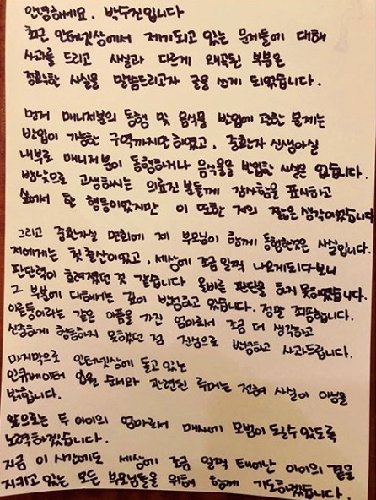 안녕하세요. 박수진입니다
최근 인터넷상에서 제기되고 있는 문제들에 대해
사과를 드리고 사실과 다르게 왜곡된 부분은
정확한 사실을 말씀드리고자 글을 쓰게 되었습니다.
먼저 매니저분의 동행 및 음식물 반입에 관한 문제는
반입이 가능한 구역까지만 하였고, 중환자 신생아실
내부로 매니저분이 동행하거나 음식물을 반입한 사실은 없습니다.
밤낮으로 고생하시는 의료진 분들께 감사함을 표시하고
싶어서 한 행동이었지만 이 또한 저의 짧은 생각이었습니다
그리고 중환자실 면회에 제 부모님이 함께 동행한것은 사실입니다.
저에게는 첫 출산이었고, 세상에 조금 일찍 나오게되다보니
판단력이 흐려졌던 것 같습니다. 올바른 판단을 하지 못하였습니다.
그 부분에 대해서는 깊이 반성하고 있습니다. 정말 죄송합니다.
이른둥이라는 같은 아픔을 가진 엄마로서 조금 더 생각하고
신중하게 행동하지 못했던 점 진심으로 반성하고 사과드립니다.
마지막으로 인터넷상에 돌고 있는
인큐베이터 입원 순서와 관련된 루머는 전혀 사실이 아님을
밝힙니다.
앞으로는 두 아이의 엄마로서 매사에 모범이 될수 있도록
노력하겠습니다.
지금 이 시간에도 세상에 조금 일찍 태어난 아이의 곁을
지키고 있는 모든 부모님들을 위해 함께 기도하겠습니다.